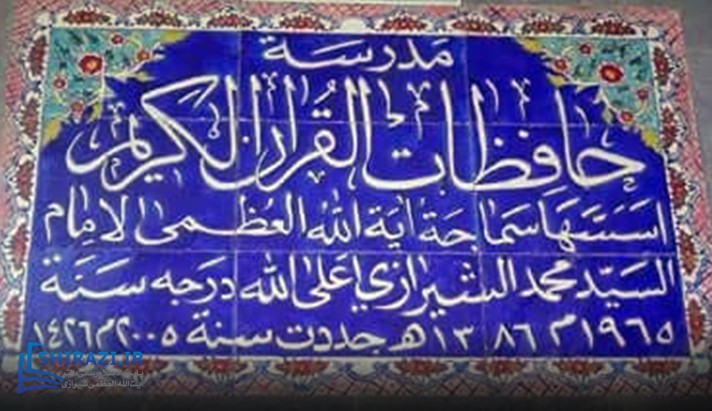 مدرسة
حافظات القرآن الكريم
اسسها سماحة اية الله العظمى الامام
السيد محمد الشيرازي اعلى الله درجه سنة
١٩٦٥م ١٣٨٦هـ جددت سنة ٢٠٠٥م ١٤٢٦
SHIRAZI.IR
آیت الله العظمی شیرازی